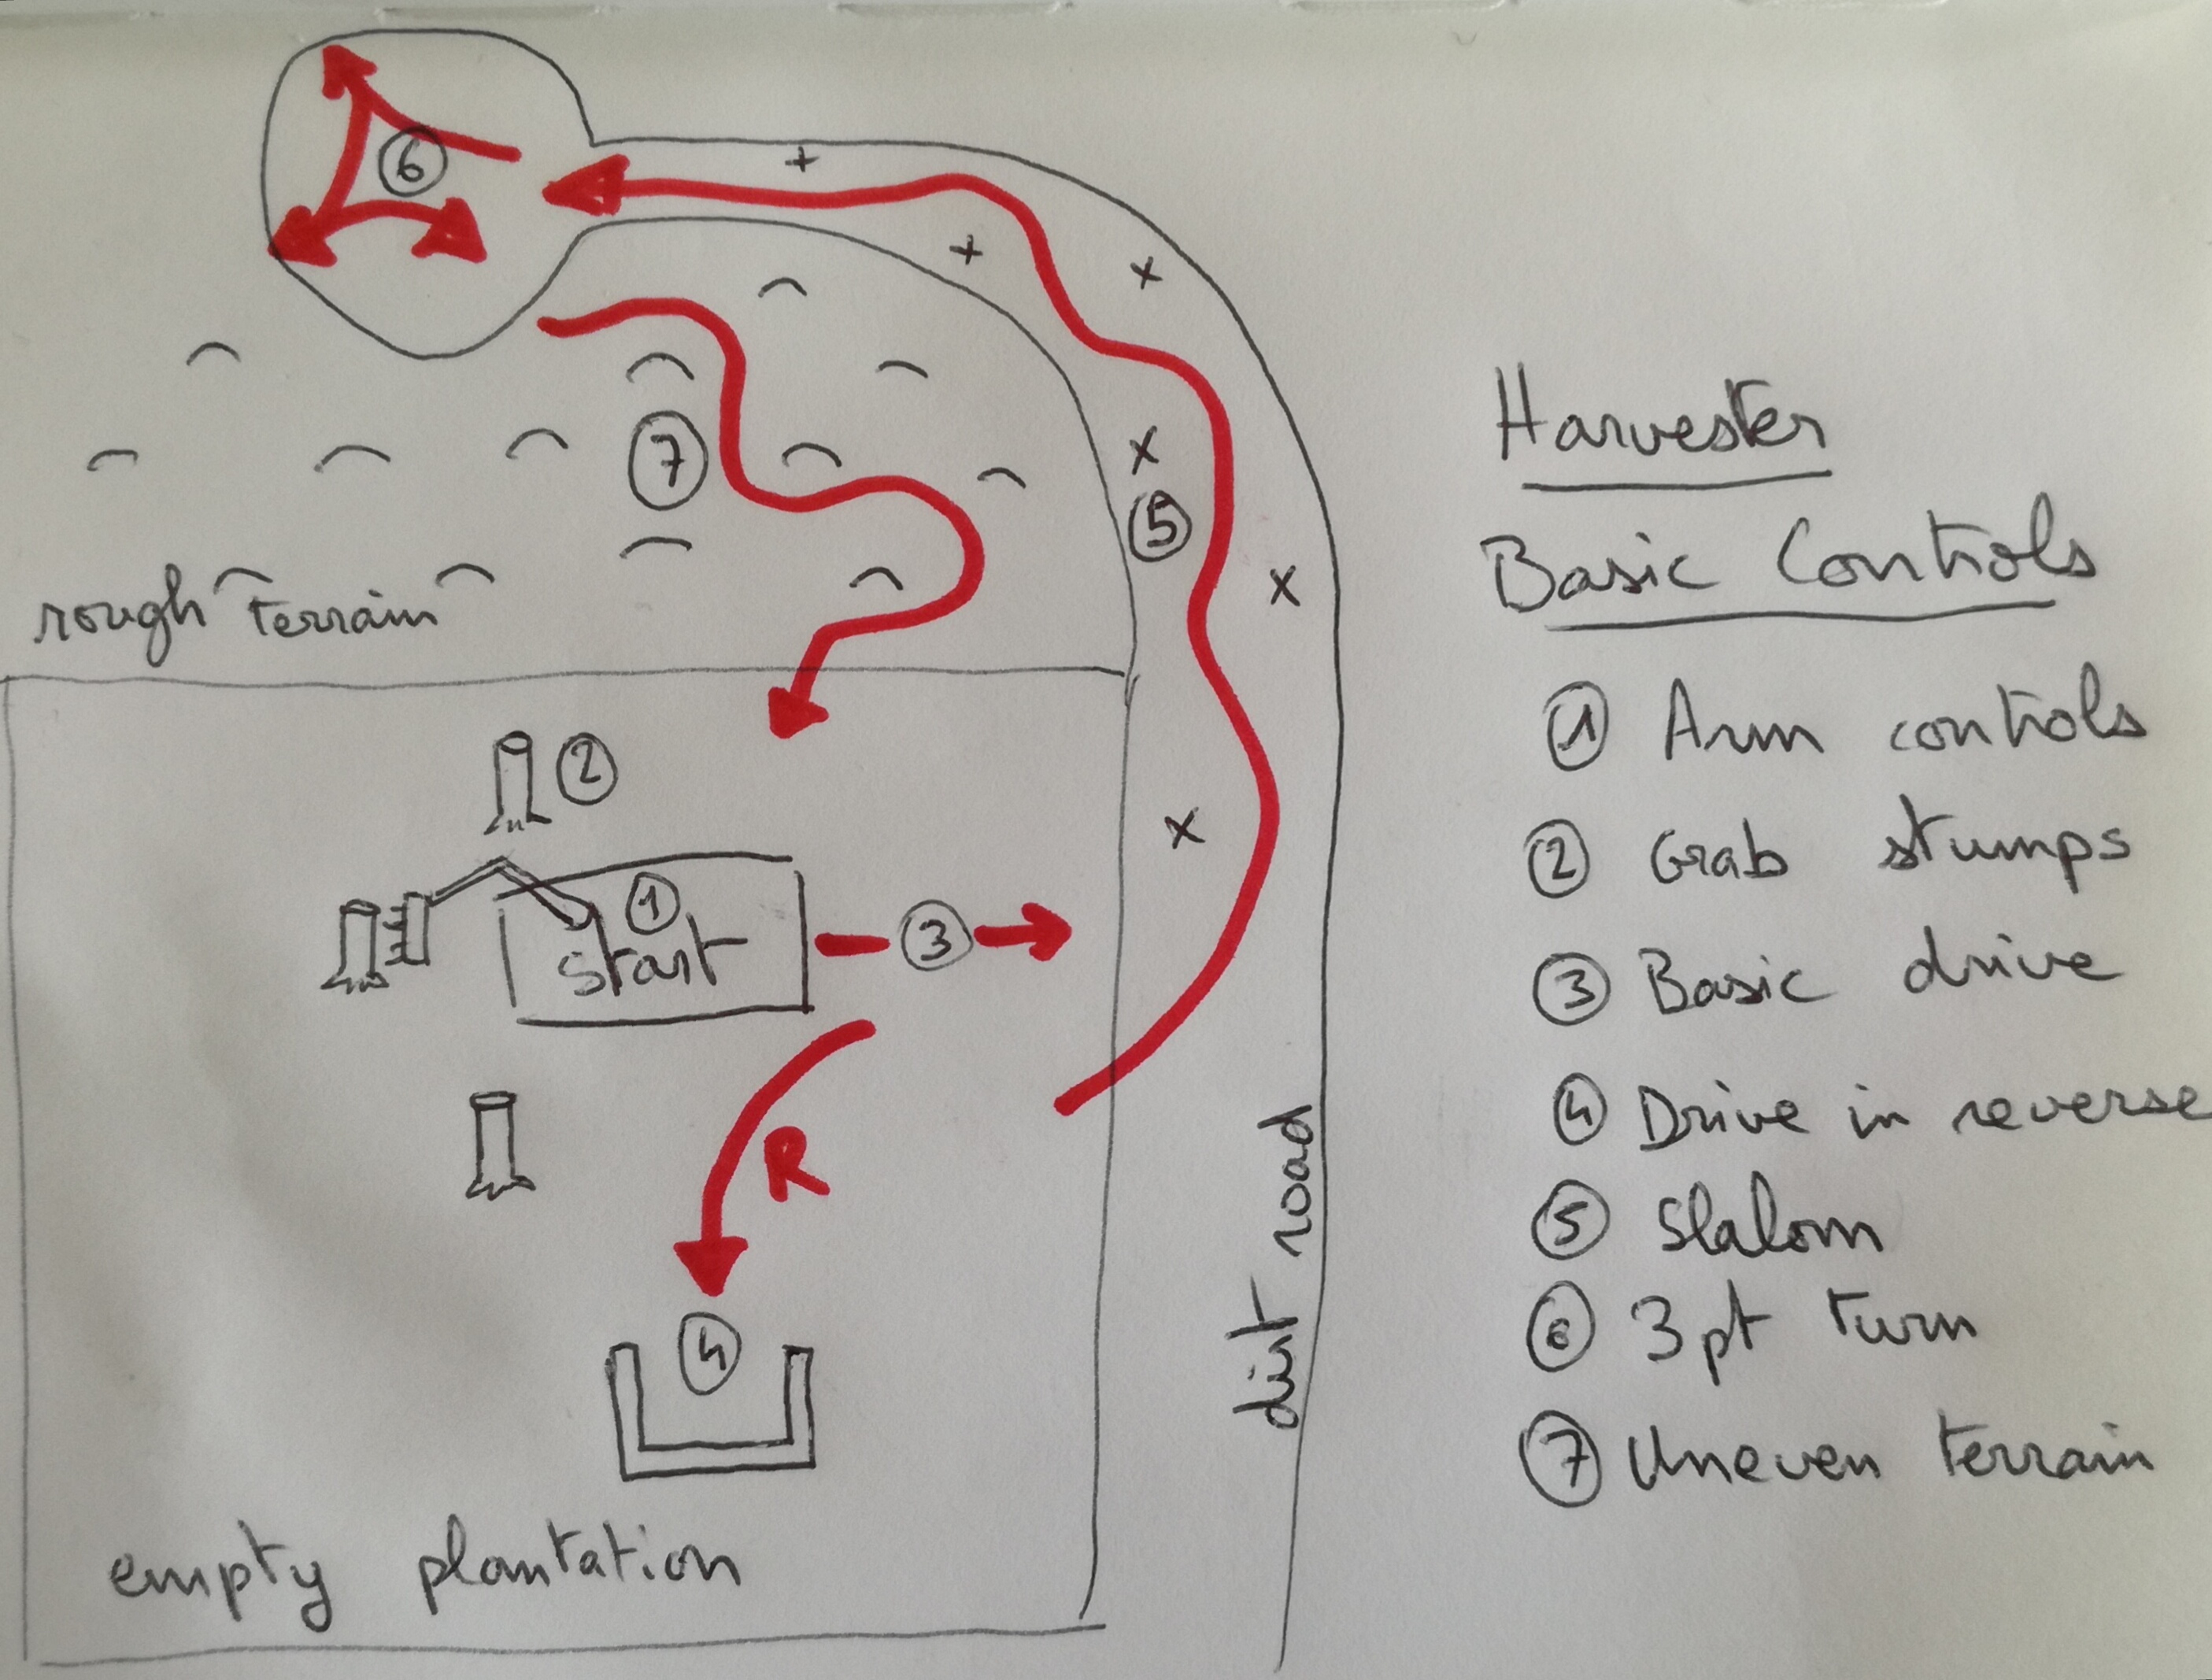 6
7
5
rough terrain
2
1
Start
3
R
4
empty plantation
dirt road
Harvester
Basic Controls
1 Arm controls
2 Grab stumps
3 Basic drive
4 Drive in reverse
5 Slalom
6 3pt turn
7 Uneven terrain